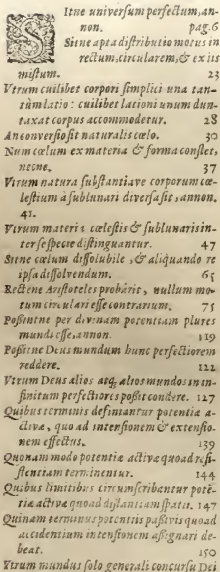 Sitne universum perfectum, an-
non. pag. 6
Sitne apta distributio motus in
rectum, circularem, & ex iis
mistum. 23
Vtrum cuilibet corpori simplici una tan-
tùm latio: cuilibet lationi unum dun-
taxat corpus accommodetur. 28
An conversio sit naturalis cœlo. 30
Num cœlum ex materia & forma constet,
necne. 37
Vtrum natura substantiave corporum cœ-
lestium à sublunari diversa sit, annon.
41.
Vtrum materia cœlestis & sublunaris in-
ter se specie distinguantur. 47
Sitne cœlum dissolubile, & aliquando re
ipsa dissolvendum. 65
Rectène Aristoteles probârit, nullum mo-
tum circulari esse contrarium. 75
Possintne per divinam potentiam plures
mundi esse, annon. 119
Possitne Deus mundum hunc perfectiorem
reddere. 122
Vtrum Deus alios atq, alios mundos in in-
finitum perfectiores possit condere. 127
Quibus terminis definiantur potentiæ a-
ctivæ, quo ad intensionem & extensio-
nem effectus. 139
Quonam modo potentiæ activæ quoad resi-
stentiam terminentur. 144
Quibus limitibus circumscribantur potē-
tiæ activæ quoad distantiam spatii. 147
Quinam terminus potentiis passivis quoad
accidentium intensionem assignari de-
beat. 150
Vtrum mundus solo generali concursu Dei